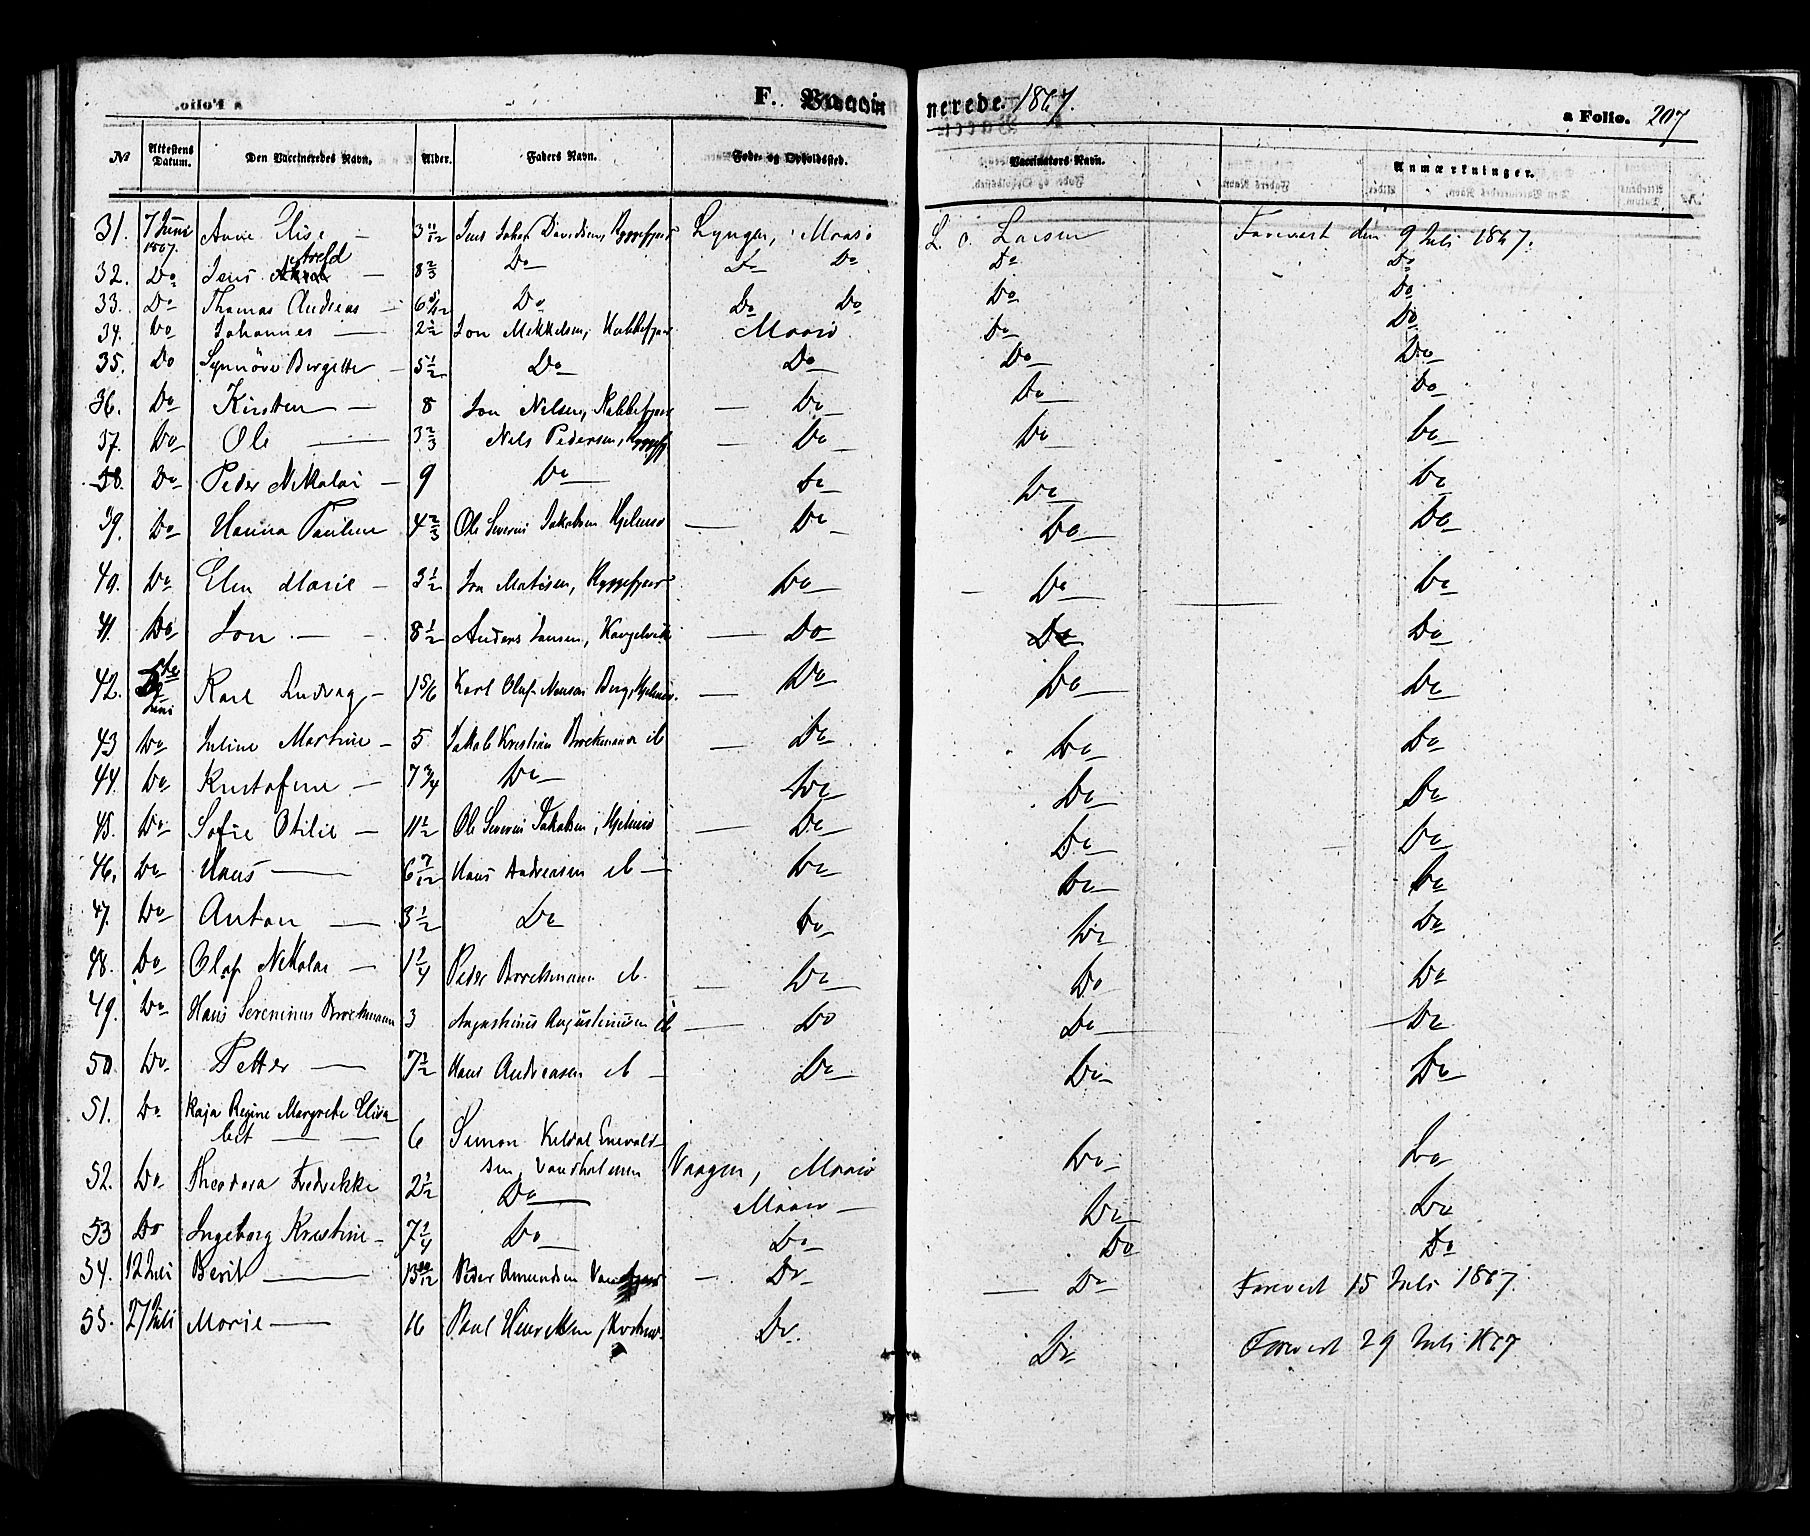 F. Vaccinerede. 1867.
a Folio. 207
№ Attestens Datum. Den Vaccineredes Navn. Alder. Faders Navn. Føde- og Opholdssted. Vaccinators Navn. Anmærkninger.
31. 7 Juni 1867. Anne Elise — 3 11/12 Jens Jakob Davidsen, Ryggefjord Lyngen, Maasø L. O. Larsen Forevist den 9 Juli 1867.
32. Do Jens — 8 2/3 Do Do Do Do Do
33. Do Thomas Andreas — 6 5/12 Do Do Do Do Do
34. Do Johannes — 2 1/2 Jon Mikkelsen, Kobbefjord Maasø Do Do
35. Do Synnøve Bergitte — 5 1/2 Do Do Do Do
36. Do Kirsten — 8 Jon Nilsen, Kobbefjord — Do Do Do
37. Do Ole — 3 2/3 Nels Pedersen, Ryggefj — Do Do Do
38. Do Peder Nikolai — 9 Do Do Do Do
39. Do Hanna Pauline 4 2/3 Ole Severin Jakobsen Hjelmsø — Do Do Do
40. Do Elen Marie — 3 1/2 Jon Matisen, Ryggefjord Do Do Do
41. Do Jon — 8 1/2 Anders Jansen, — Do Do Do
42. Juni Karl Ludvig — 1 5/6 Karl Olaf Berg, Hjelmsø. — Do Do Do
43 Do Juline Martine — 5 Jakob Kristian Brockmann ib — Do Do Do
44. Do Kristofine — 7 3/4 Do Do Do Do
45. Do Sofie Otilie — 11 1/2 Ole Severin Jakobsen, Hjelmsø — Do Do Do
46. Do Hans — 6 7/12 Hans Andreasen ib — Do Do Do
47. Do Anton — 3 1/2 Do Do Do Do
48. Do Olaf Nikolai — 1 3/4 Peder Brockmann ib. — Do Do Do
49. Do Hans Sereninus Brockmann 3 Augustinus Augustinusen ib — Do Do Do
50. Do Petter — 7 1/2 Hans Andreasen ib — Do Do Do
51. Do Kaja Regine Margrete Elisa-
bet — 6 Simon Kildal Enevald-
sen, Vaagen, Maasø Do Do
52. Do Theodora Fredrikke 2 1/2 Do Maasø — Do Do
53 Do Ingeborg Kristine — 7 1/4 Do Do Do Do
54. 12 Juli Berit — 13 10/12 Peder Amundsen — Do — Do Forevist 15 Juli 1867.
55. 27 Juli Marie — 16 Paul Henriksen Do. Do Forevist 29 Juli 1867